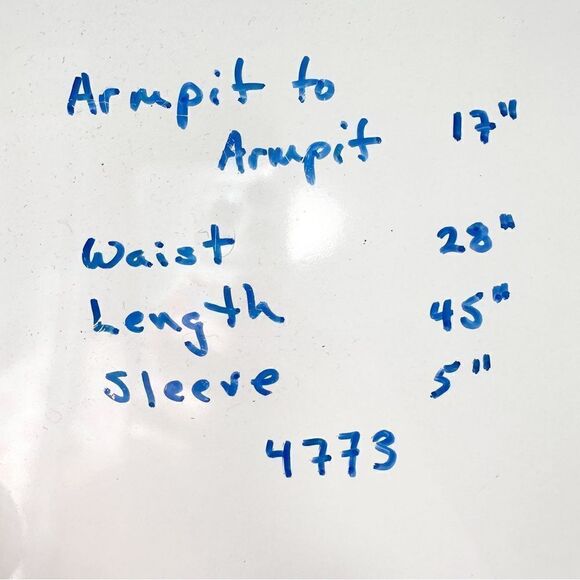 Armpit to
Armpit 17"
Waist 28"
Length 45"
Sleeve 5"
4773